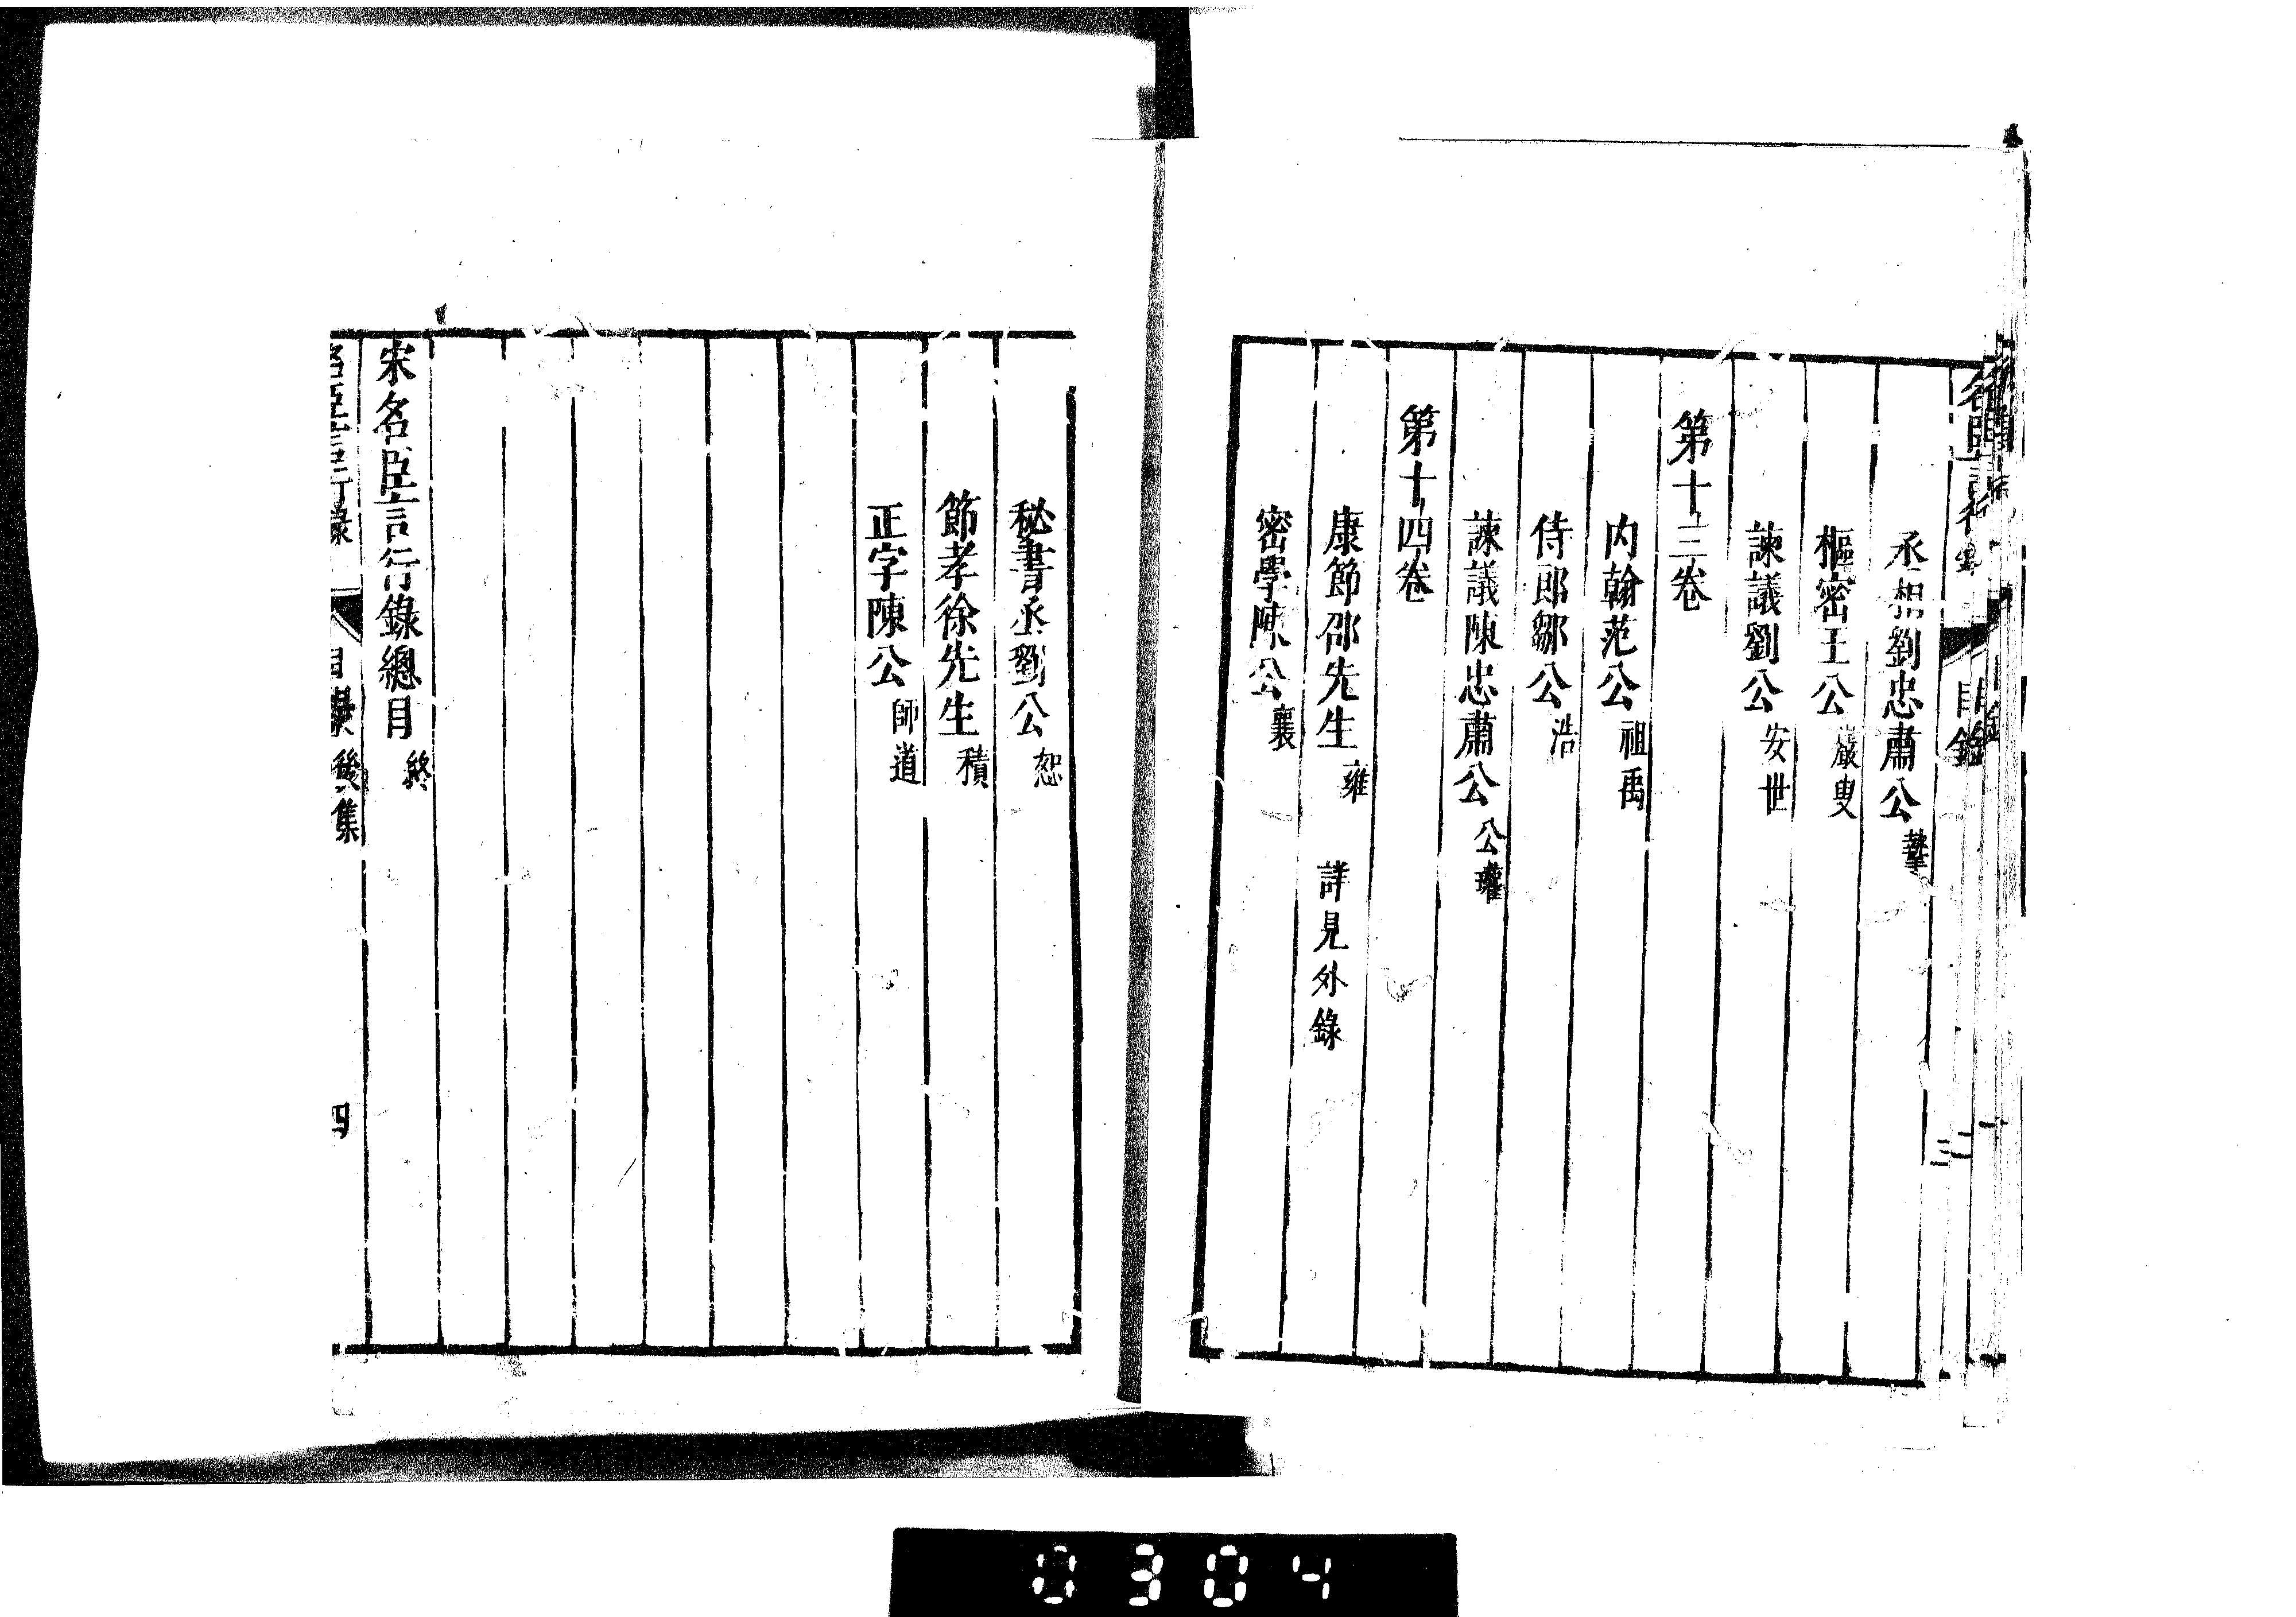 丞相劉忠肅公摯
樞密王公巖叟
諫議劉公安世
第十三卷
内翰范公祖禹
侍郎鄒公浩
諫議陳忠肅公公瓘
第十四卷
康節邵先生雍 詳見外錄
密學陳公襄
秘書丞劉公恕
節孝徐先生積
正字陳公師道
宋名臣言行錄總目終
名臣言行錄 目錄後集 四
0304